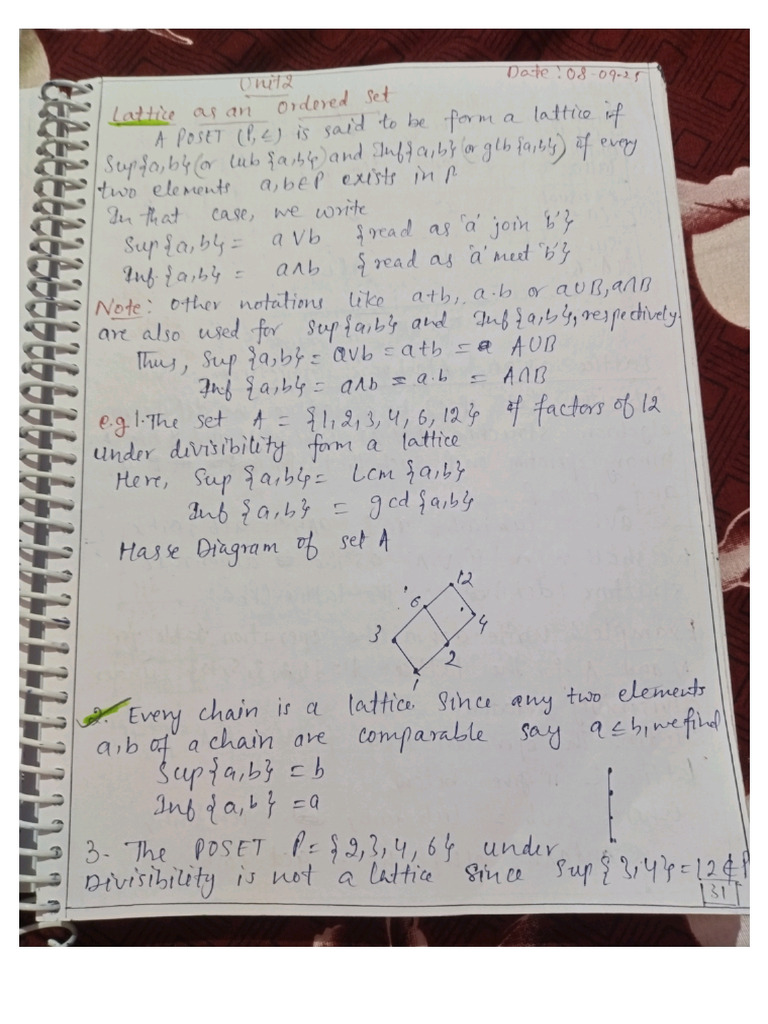 Unit2
Date: 08-09-25
Lattice as an Ordered set
A POSET (P, ≤) is said to be form a lattice if
Sup{a,b} (or lub {a,b}) and Inf{a,b} (or glb {a,b}) of every
two elements a,b∈P exists in P
In that case, we write
Sup{a,b} = a∨b {read as 'a' join 'b'}
Inf {a,b} = a∧b {read as 'a' meet 'b'}
Note: Other notations like a+b, a.b or a∪B, a∩B
are also used for Sup{a,b} and Inf{a,b}, respectively.
Thus, Sup {a,b} = a∨b = a+b = A∪B
Inf {a,b} = a∧b = a.b = A∩B
e.g 1. The set A = {1,2,3,4,6,12} of factors of 12
under divisibility form a lattice
Here, Sup {a,b} = Lcm {a,b}
Inf {a,b} = gcd {a,b}
Hasse Diagram of set A
12
6
4
3
2
1
2. Every chain is a lattice. Since any two elements
a,b of a chain are comparable say a≤b, we find
Sup{a,b} = b
Inf {a,b} = a
3. The POSET P = {2,3,4,6} under
Divisibility is not a lattice since Sup{3,4} = 12∉P
31